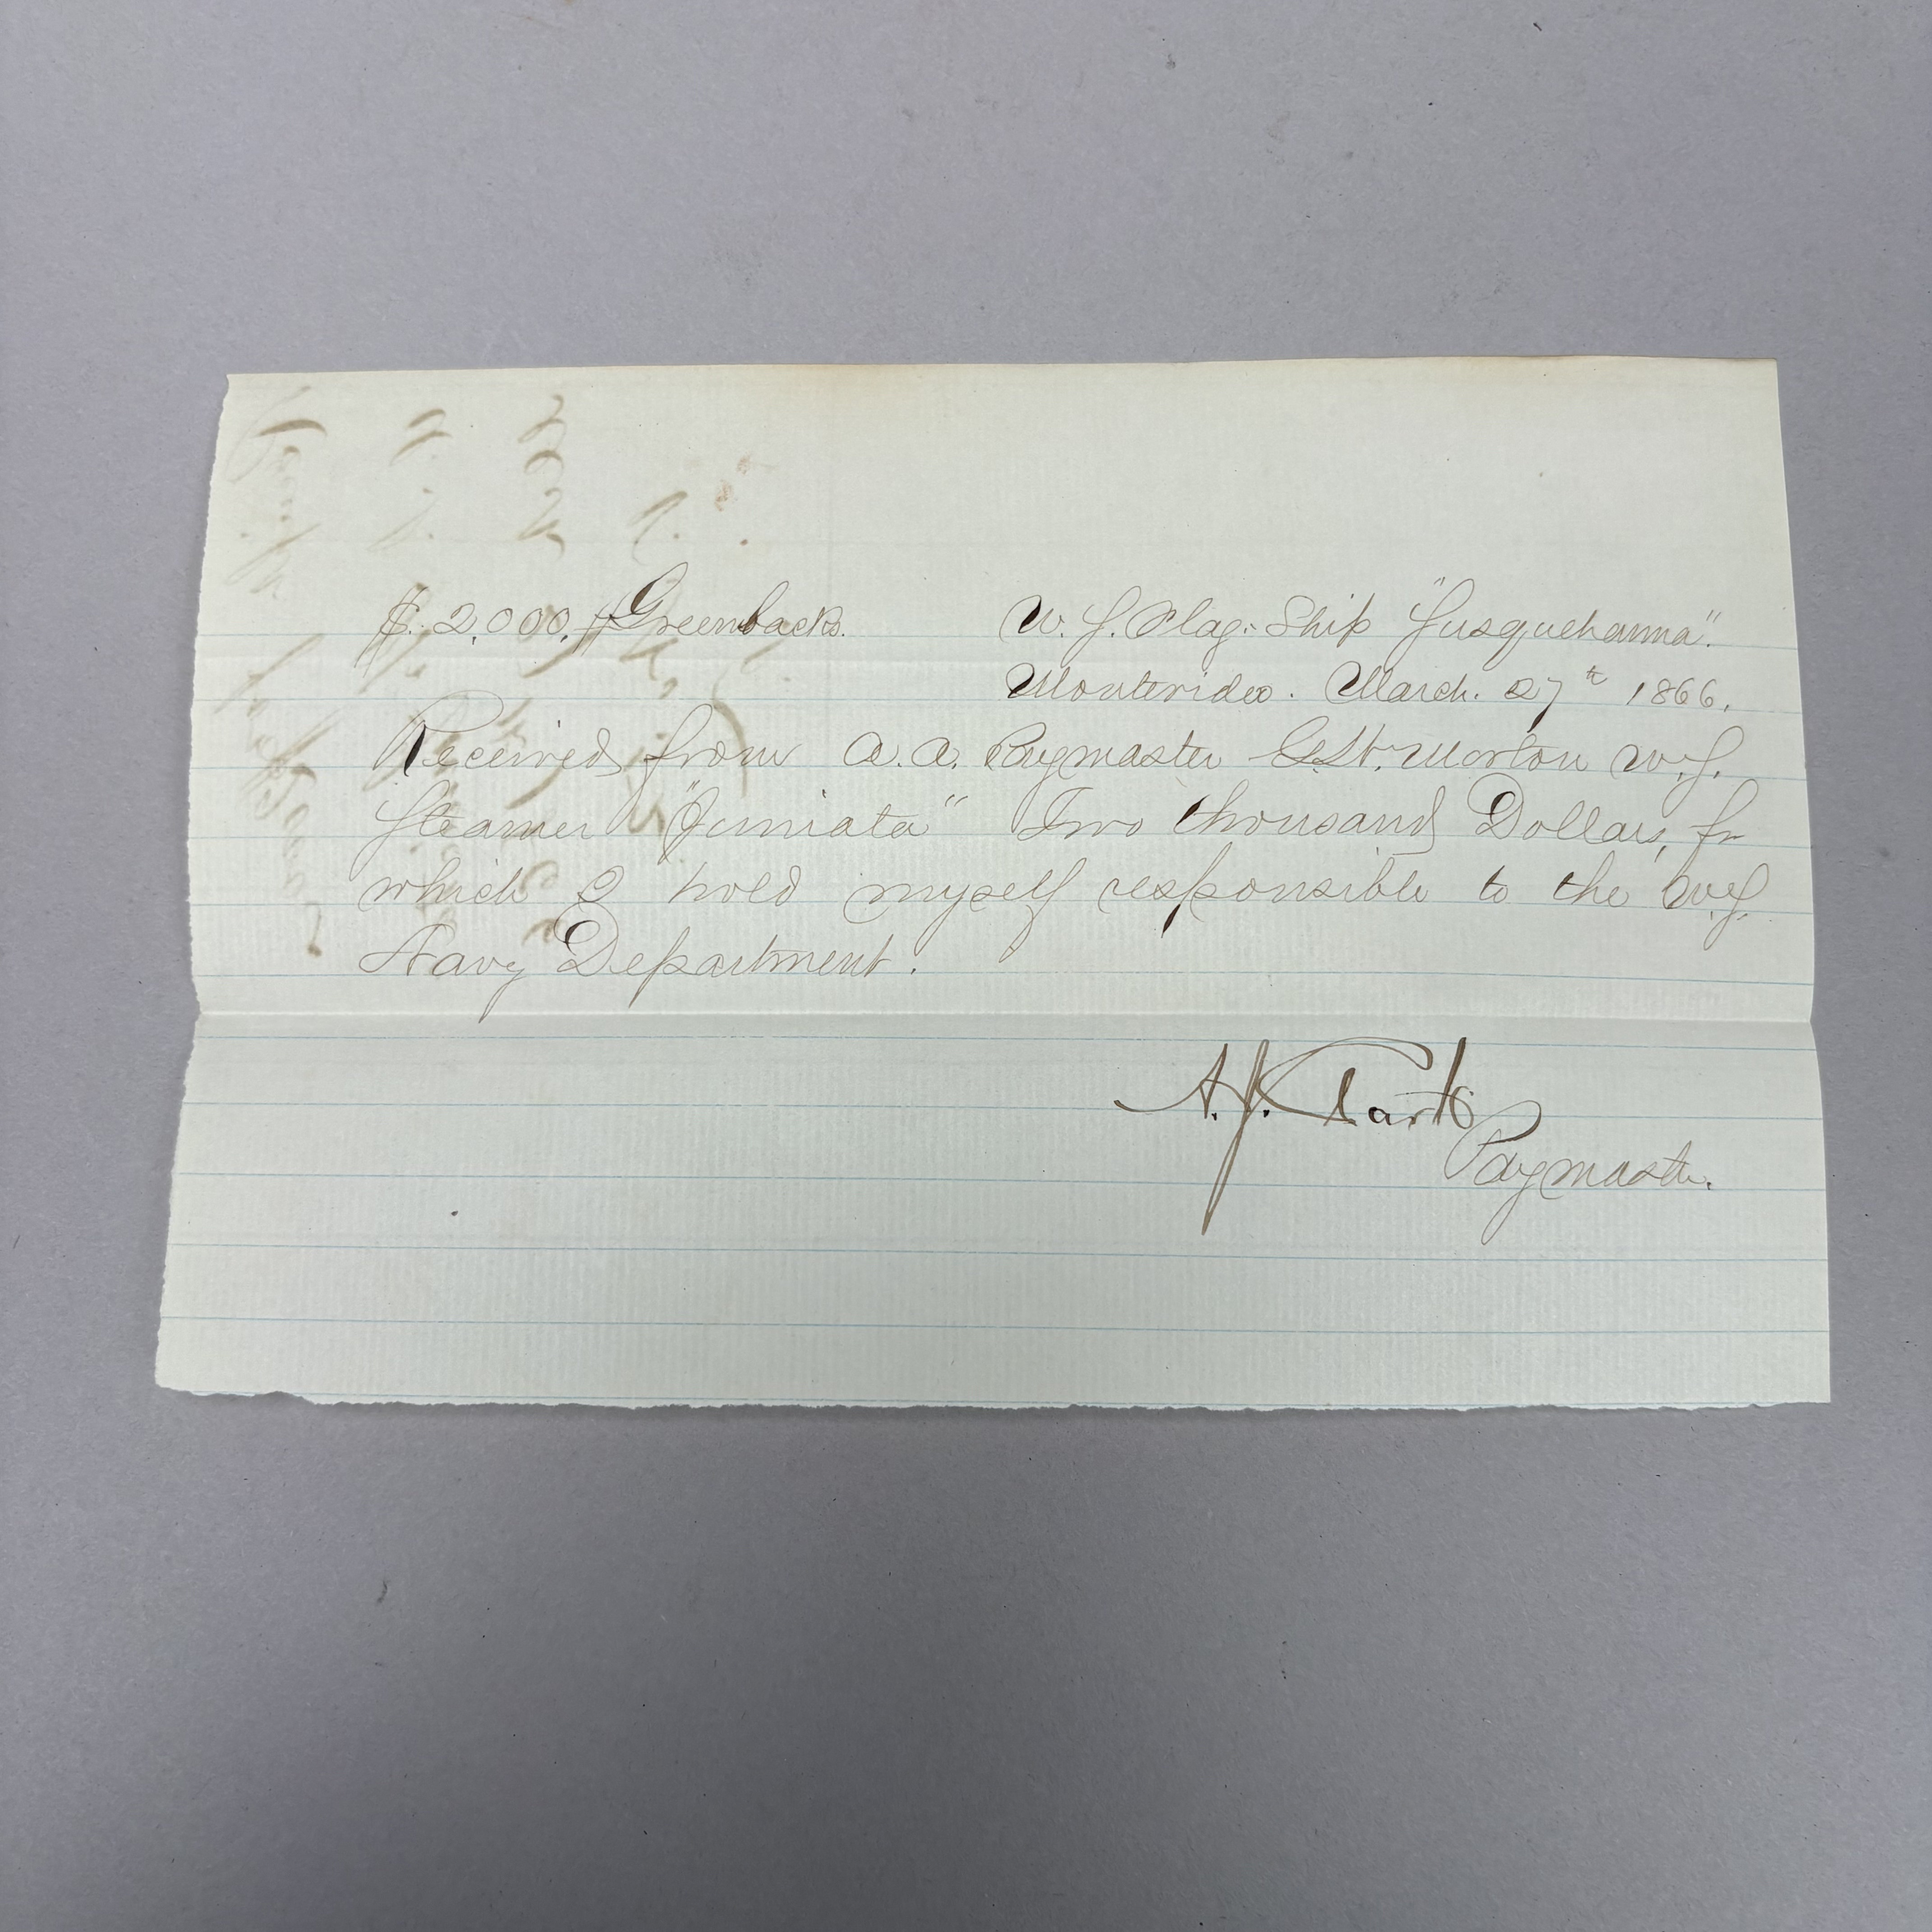 $. 2,000, Greenbacks. U. S. Flag-Ship "Susquehanna".
Montevideo. March. 27th 1866.
Received from A. A. Paymaster G.W. Morton U.S.
Steamer "Juniata" Two thousand Dollars, for
which I hold myself responsible to the U.S.
Navy Department.
A. J. Clark
Paymaster.